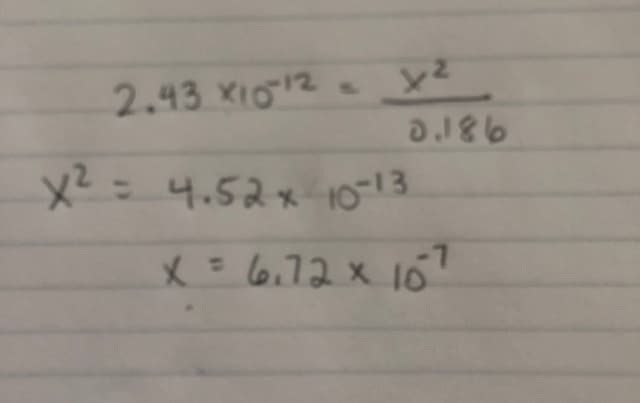 2.43 x10⁻¹² = x² / 0.186
x² = 4.52 x 10⁻¹³
x = 6.72 x 10⁻⁷